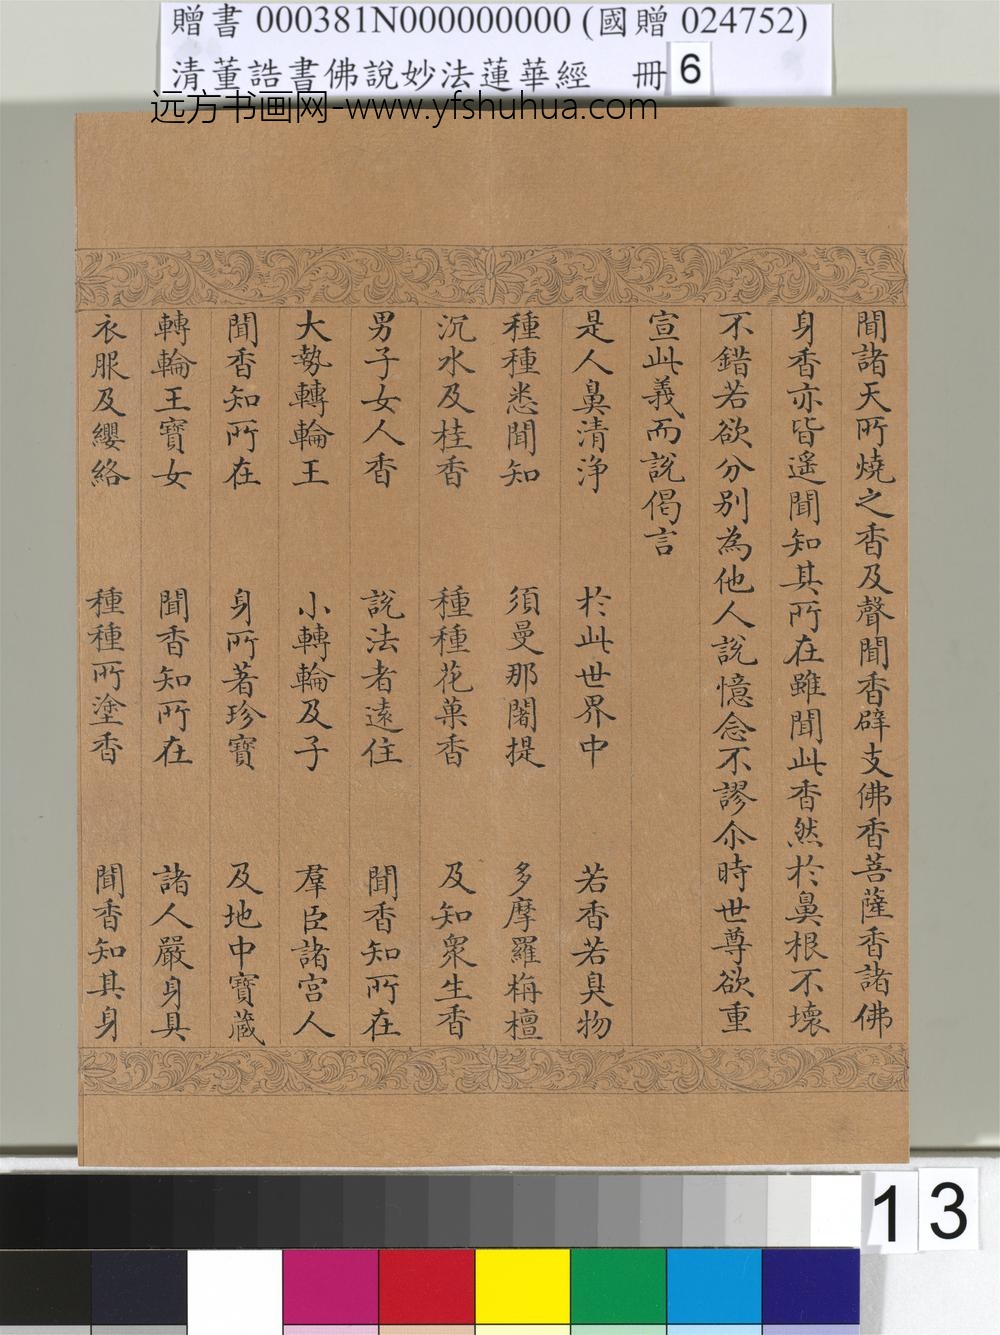 贈書 000381N000000000 (國贈 024752)
清董誥書佛說妙法蓮華經 冊 6
远方书画网-www.yfshuhua.com
聞諸天所燒之香及聲聞香辟支佛香菩薩香諸佛
身香亦皆遙聞知其所在雖聞此香然於鼻根不壞
不錯若欲分別為他人說憶念不謬尒時世尊欲重
宣此義而說偈言
是人鼻清淨 於此世界中 若香若臭物
種種悉聞知 須曼那闍提 多摩羅栴檀
沉水及桂香 種種花菓香 及知眾生香
男子女人香 說法者遠住 聞香知所在
大勢轉輪王 小轉輪及子 羣臣諸宮人
聞香知所在 身所著珍寶 及地中寶藏
轉輪王寶女 聞香知所在 諸人嚴身具
衣服及纓絡 種種所塗香 聞香知其身
13